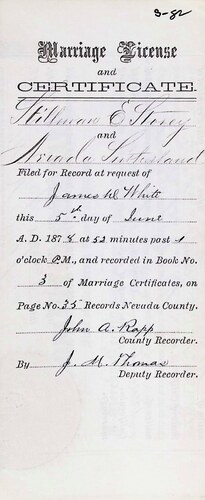 3-82
Marriage License
and
CERTIFICATE.
Stillman E. Storey
and
Nevada Sutherland
Filed for Record at request of
James W. White
this 5th day of June
A. D. 1878 at 52 minutes past 1
o'clock P.M., and recorded in Book No.
3 of Marriage Certificates, on
Page No. 35 Records Nevada County.
John A. Rapp
County Recorder.
By J. M. Thomas
Deputy Recorder.